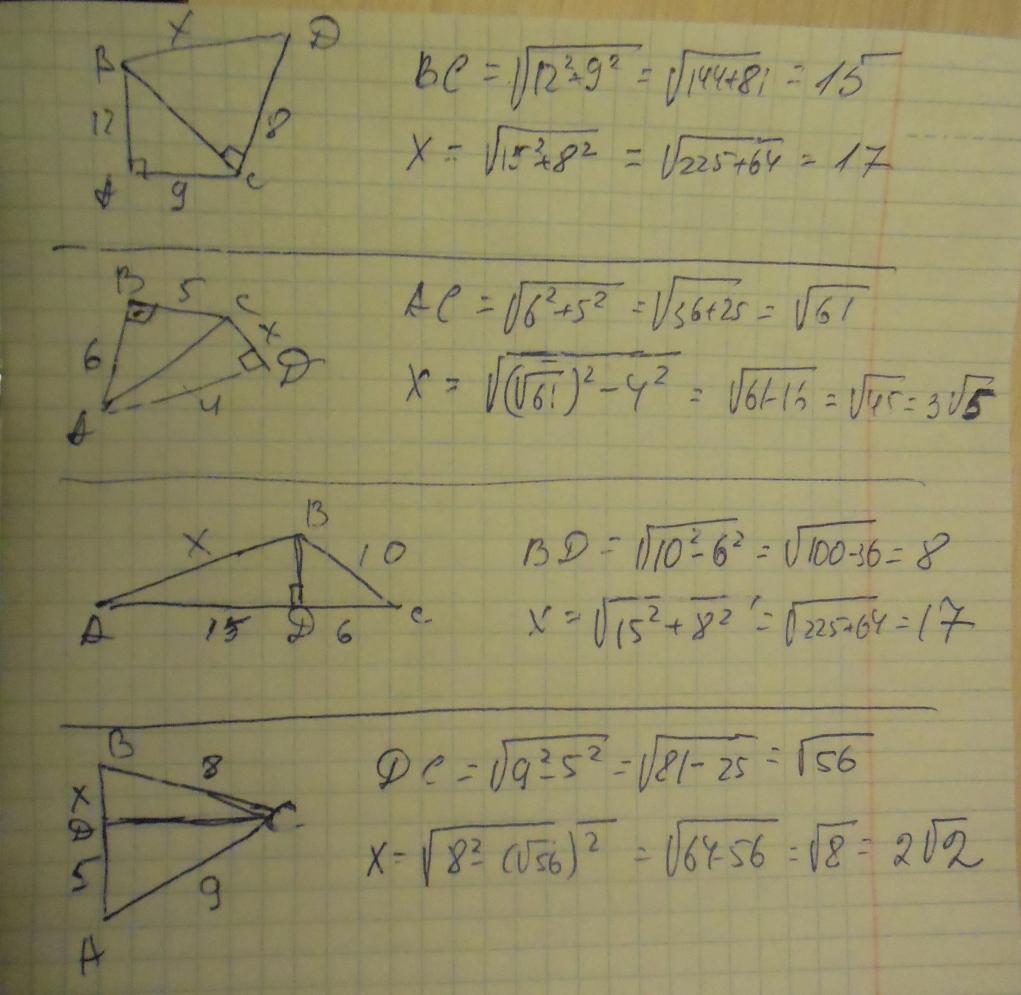 X D
B
12 8
A 9 C
BC = √12²+9² = √144+81 = 15
X = √15²+8² = √225+64 = 17
B 5 C X
6 D
A 4
AC = √6²+5² = √36+25 = √61
X = √(√61)²-4² = √61-16 = √45 = 3√5
B
X 10
A 15 D 6 C
BD = √10²-6² = √100-36 = 8
X = √15²+8² = √225+64 = 17
B 8
X
D C
5 9
A
DC = √9²-5² = √81-25 = √56
X = √8²-(√56)² = √64-56 = √8 = 2√2